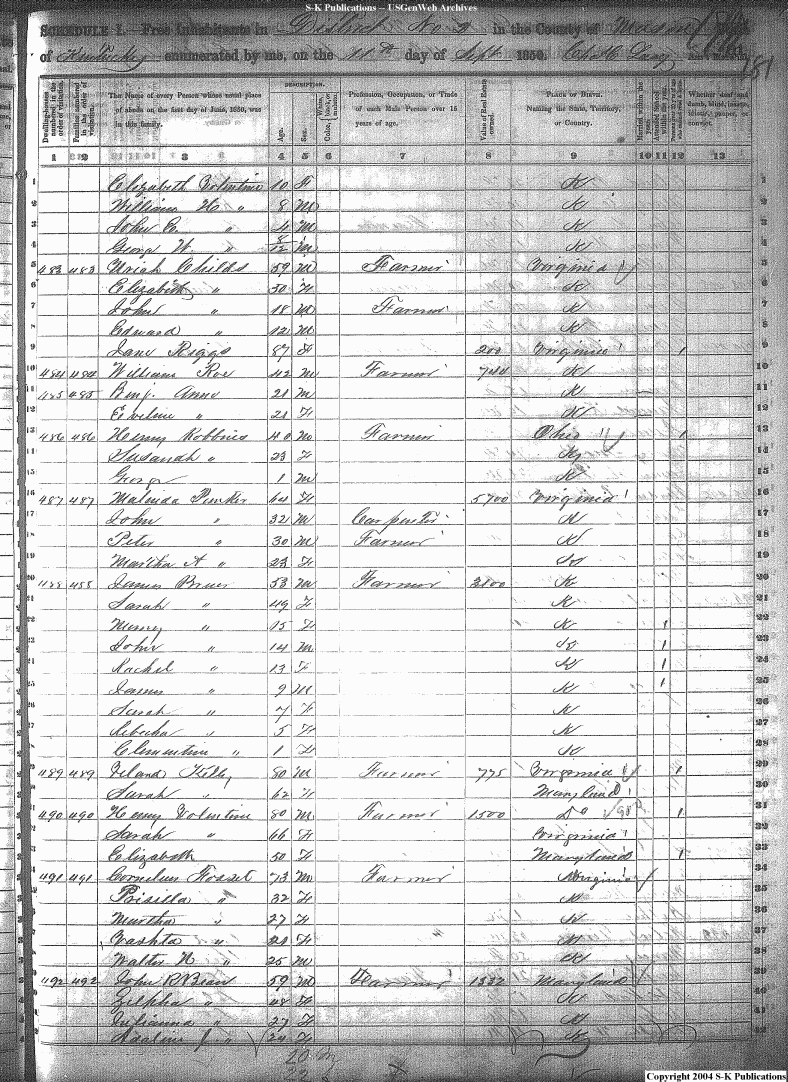 S-K Publications -- USGenWeb Archives
SCHEDULE I.—Free Inhabitants in District No 2 in the County of Mason
of Kentucky enumerated by me, on the 11th day of Sept 1850.
181
DESCRIPTION.
Dwelling-houses numbered in the order of visitation.
Families numbered in the order of visitation.
The Name of every Person whose usual place of abode on the first day of June, 1850, was in this family.
Age.
Sex.
Color, White, black, or mulatto.
Profession, Occupation, or Trade of each Male Person over 15 years of age.
Value of Real Estate owned.
PLACE OF BIRTH. Naming the State, Territory, or Country.
Married within the year.
Attended School within the year.
Whether deaf and dumb, blind, insane, idiotic, pauper, or convict.
1 2 3 4 5 6 7 8 9 10 11 12 13
1 Elizabeth Volentine 10 F K 1
2 William H " 8 M K 2
3 John C. " 4 M K 3
4 George W. " 8/12 M K 4
5 483 483 Uriah Childs 59 M Farmer Virginia 5
6 Elizabeth " 50 F K 6
7 John " 18 M Farmer K 7
8 Edward " 12 M K 8
9 Jane Riggs 87 F 200 Virginia 1 9
10 484 484 William Roe 42 M Farmer K 10
11 485 485 Benj. Anno 21 M K 11
12 Eveline " 21 F K 12
13 486 486 Henry Robbins 40 M Farmer Ohio 1 13
14 Susanah " 23 F Ky 14
15 George 1 M K 15
16 487 487 Malinda 64 F 5700 Virginia 16
17 John " 32 M Carpenter K 17
18 Peter " 30 M Farmer K 18
19 Martha A " 23 F 19
20 488 488 James 53 M Farmer K 20
21 Sarah " 49 F K 21
22 " 15 F K 1 22
23 John " 14 M 1 23
24 Rachel " 13 F 1 24
25 James " 9 M K 1 25
26 Sarah " 7 F K 26
27 Rebecka " 5 F K 27
28 Clementine " 1 F 28
29 489 489 80 M Farmer 775 Virginia 1 29
30 Sarah " 62 F Maryland 30
31 490 490 Henry Volentine 80 M Farmer 1500 Do 1 31
32 Sarah " 66 F Virginia 32
33 Elizabeth 50 F Maryland 1 33
34 491 491 Cornelius 73 M Farmer Virginia 34
35 Prisilla " 32 F K 35
36 Martha " 27 F K 36
37 Vashta " 21 F K 37
38 Walter N " 25 M K 38
39 492 492 John R Bean 59 M Farmer 1332 Maryland 39
40 Zilpha " 48 F K 40
41 Julianna " 27 F K 41
42 Adaline J " 24 F K 42
20 M
22 F
Copyright 2004 S-K Publications